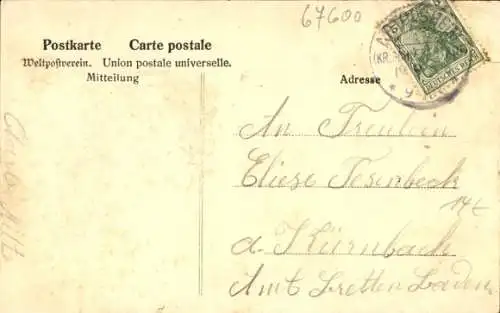 67600
Postkarte Carte postale
Weltpostverein. Union postale universelle.
Mitteilung
Adresse
DEUTSCHES REICH
An Freulein
Eliese Tesenbeck
14 t
a. Kürnbach
Amt Bretten Baden